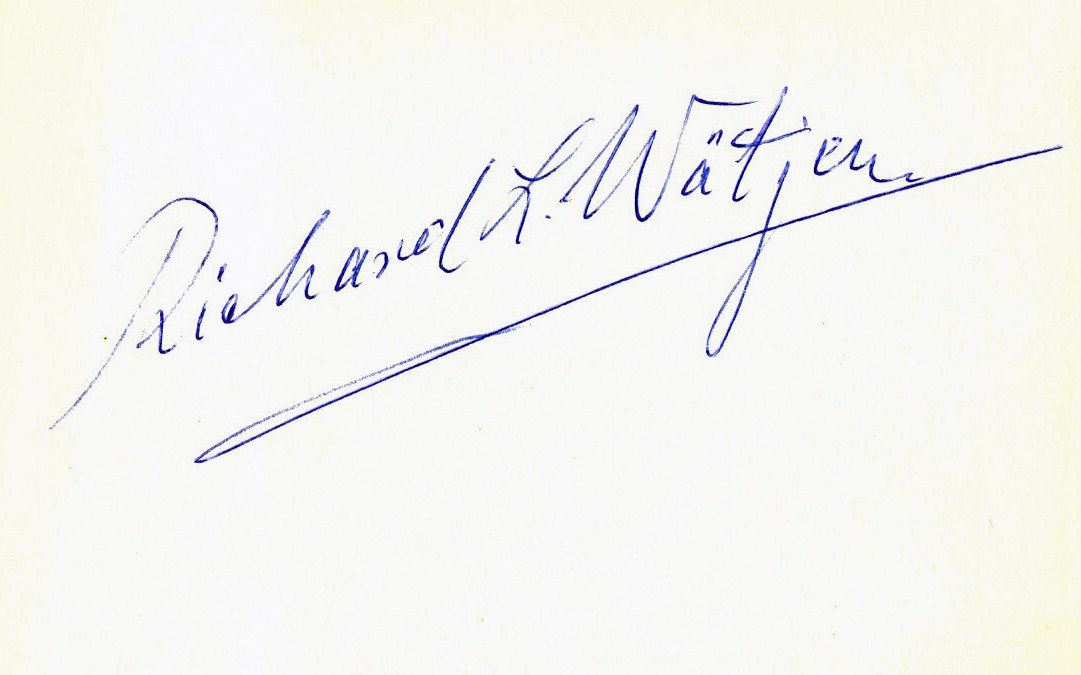 Richard L. Wätjen